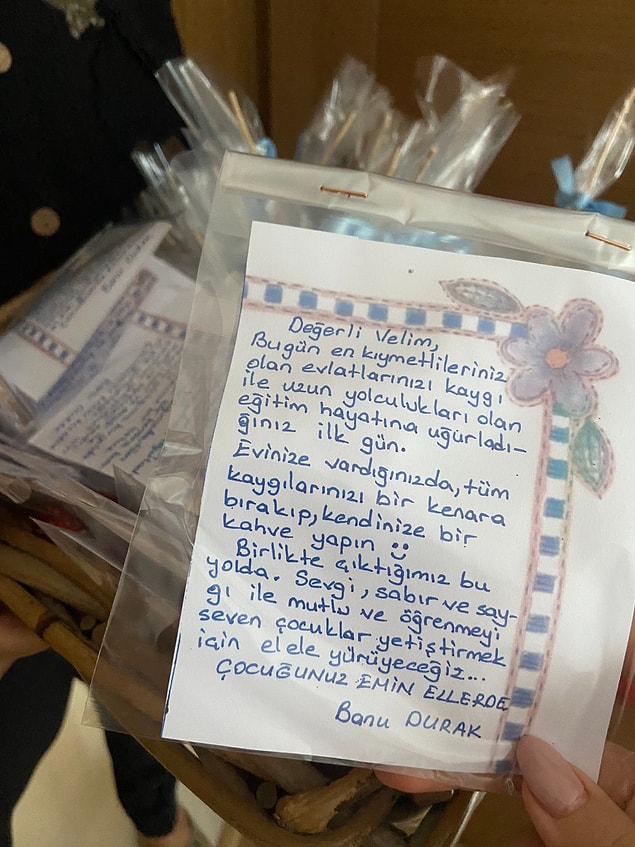 Değerli Velim,
Bugün en kıymetlileriniz
olan evlatlarınızı kaygı
ile uzun yolculukları olan
eğitim hayatına uğurladı-
ğınız ilk gün.
Evinize vardığınızda, tüm
kaygılarınızı bir kenara
bırakıp, kendinize bir
kahve yapın
Birlikte çıktığımız bu
yolda. Sevgi, sabır ve say-
gı ile mutlu ve öğrenmeyi
seven çocuklar yetiştirmek
için elele yürüyeceğiz...
ÇOCUĞUNUZ EMİN ELLERDE
Banu DURAK
Banu DURAK